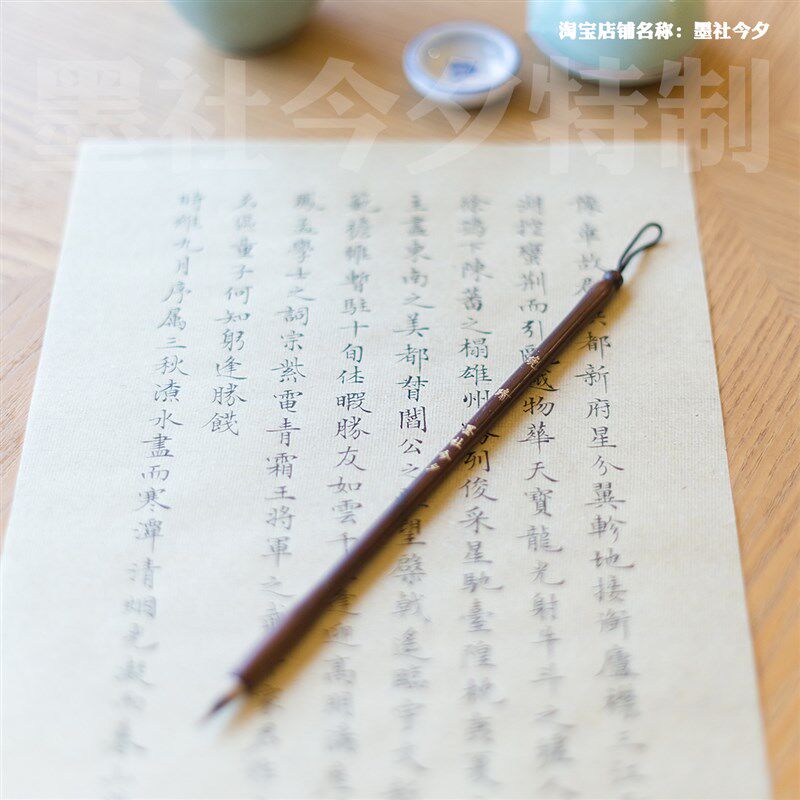 淘宝店铺名称：墨社今夕
墨社今夕特制
豫章故郡洪都新府星分翼軫地接衡廬襟三江
湖控蠻荊而引甌越物華天寶龍光射牛斗之墟
徐孺下陳蕃之榻雄州列俊采星馳臺隍枕夷夏
主盡東南之美都督閻公之望棨戟遙臨宇文新
範襜帷暫駐十旬休暇勝友如雲千逢迎高朋滿座
鳳孟學士之詞宗紫電青霜王將軍之武家君作
名區童子何知躬逢勝餞
時維九月序屬三秋潦水盡而寒潭清烟光凝而暮山